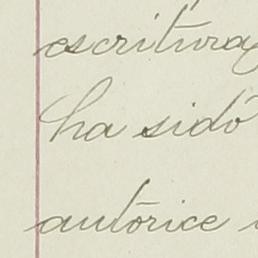 escritura
ha sido
autorice